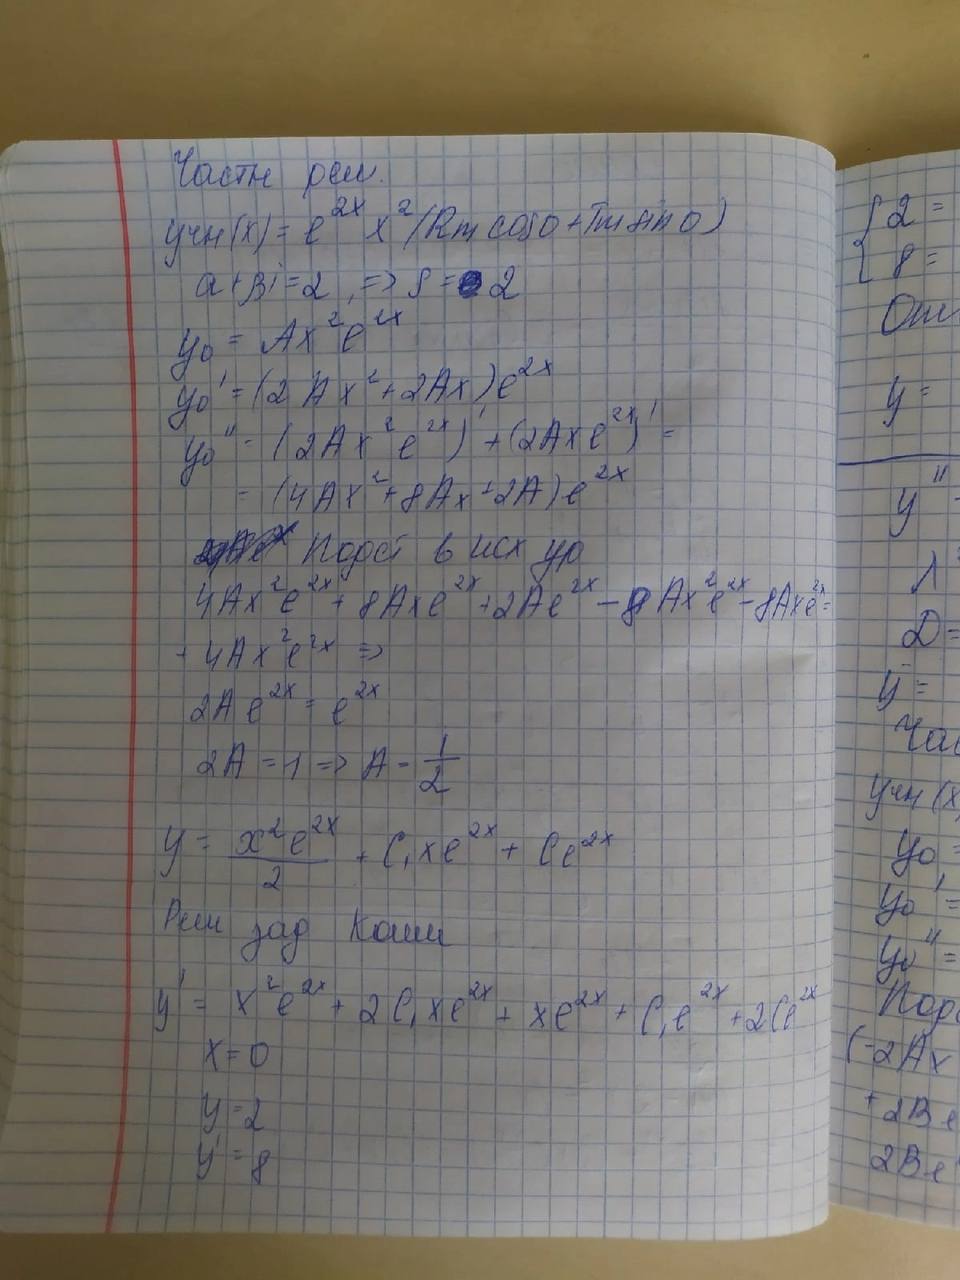 Частн реш.
yчн(x) = e^{2x} x^2 (Rm cos 0 + Tm sin 0)
a+Bi = 2, => S = 2
y0 = Ax^2 e^{2x}
y0' = (2Ax^2 + 2Ax)e^{2x}
y0'' = (2Ax^2 e^{2x})' + (2Axe^{2x})' =
= (4Ax^2 + 8Ax + 2A)e^{2x}
Подст в исх ур
4Ax^2 e^{2x} + 8Axe^{2x} + 2Ae^{2x} - 8Ax^2 e^{2x} - 8Axe^{2x} =
+ 4Ax^2 e^{2x} =>
2Ae^{2x} = e^{2x}
2A = 1 => A = 1/2
y = x^2 e^{2x}/2 + C, xe^{2x} + Ce^{2x}
Реш зад Коши
y' = x^2 e^{2x} + 2C, xe^{2x} + xe^{2x} + C, e^{2x} + 2Ce^{2x}
x = 0
y = 2
y' = 8
{ 2 =
8 =
y =
y''
λ
D =
y =
yчн(x)
y0 =
y0' =
y0'' =
(-2Ax
+ 2Be
2Be